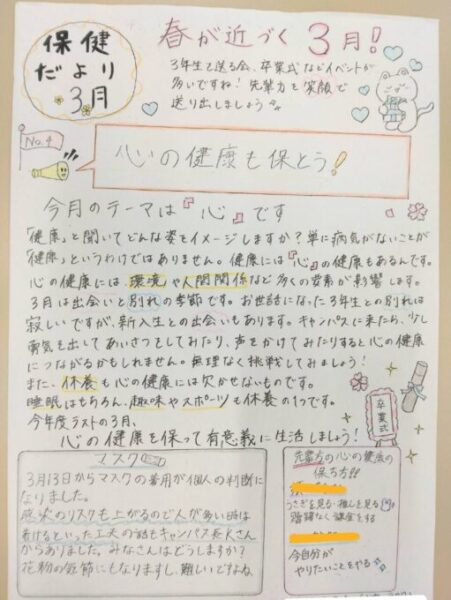 保健
だより
3月
春が近づく3月!
3年生を送る会、卒業式などイベントが
多いですね!先輩方を笑顔で
送り出しましょう
No.4
心の健康も保とう!
今月のテーマは『心』です
「健康」と聞いてどんな姿をイメージしますか?単に病気がないことが
「健康」というわけではありません。健康には『心』の健康もあるんです。
心の健康には、環境や人間関係など多くの要素が影響します。
3月は出会いと別れの季節です。お世話になった3年生との別れは
寂しいですが、新入生との出会いもあります。キャンパスに来たら、少し
勇気を出してあいさつをしてみたり、声をかけてみたりすると心の健康
につながるかもしれません。無理なく挑戦してみましょう!
また、休養も心の健康には欠かせないものです。
睡眠はもちろん、趣味やスポーツも休養の1つです。
今年度ラストの3月、
心の健康を保って有意義に生活しましょう!
卒業式
マスク
3月13日からマスクの着用が個人の判断に
なりました。
感染のリスクも上がるので人が多い時は
着けるといった工夫の話もキャンパス長Kさん
からありました。みなさんはどうしますか?
花粉の季節にもなりますし、難しいですよね。
先輩方の心の健康の
保ち方!!
うさぎを見る・推しを見る
躊躇なく課金をする
今自分が
やりたいことをやる